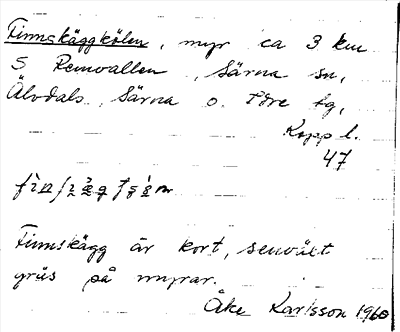 Finnskäggkölen, myr ca 3 km
S Remvallen, Särna sn,
Älvdals, Särna o. Idre tg,
Kopp l.
47
Finnskägg är kort, senväxt
gräs på myrar.
Åke Karlsson 1960